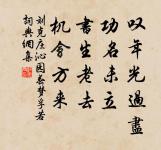 叹年光過盡
功名未立
書生老去
机會方来
刘克庄沁园春梦孚若
詞典網集